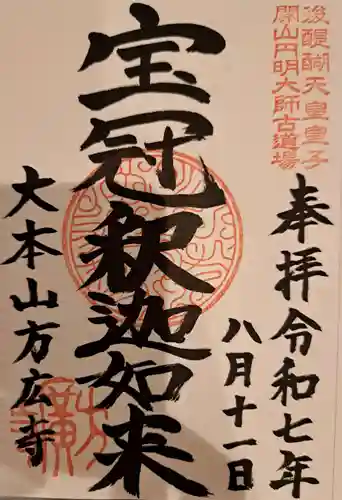 後醍醐天皇皇子
開山円明大師古道場
奉拝令和七年
八月十一日
宝冠釈迦如来
大本山方広寺